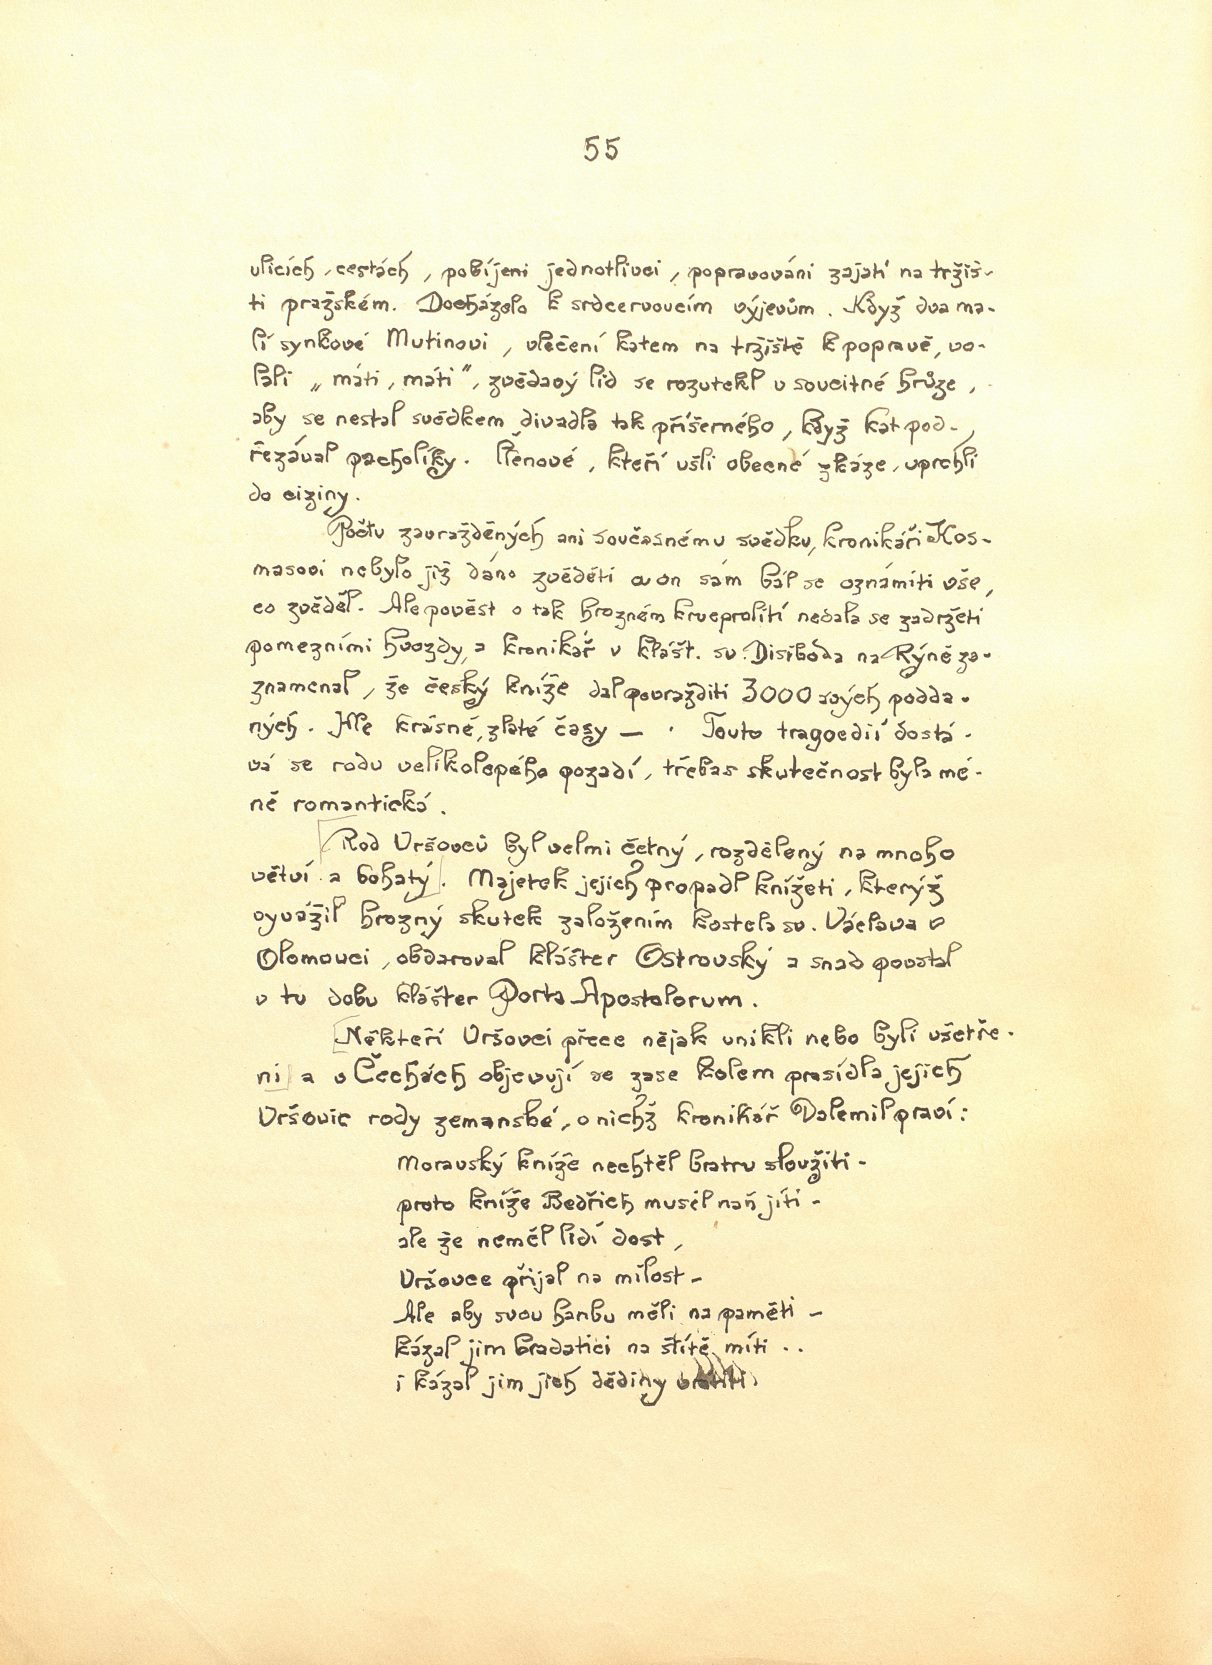 55
ulicích, cestách, pobíjeni jednotlivci, popravováni zajatí na tržiš-
ti pražském. Docházelo k srdcervoucím výjevům. Když dva ma-
lí synkové Mutinovi, vlečení katem na tržiště k popravě, vo-
lali „máti, máti", zvědavý lid se rozutekl v soucitné hrůze,
aby se nestal svědkem divadla tak příšerného, když kat pod-
řezával pacholíky. Členové, kteří ušli obecné zkáze, uprchli
do ciziny.
Počtu zavražděných ani současnému svědku, kronikáři Kos-
masovi nebylo již dáno zvěděti a on sám bál se oznámiti vše,
co zvěděl. Ale pověst o tak hrozném krveprolití nedala se zadržeti
pomezními hvozdy, a kronikář v klášt. sv. Disiboda na Rýně za-
znamenal, že český kníže dal povražditi 3000 svých podda-
ných. Hle krásné, zlaté časy — . Touto tragoedií dostá-
vá se rodu velikolepého pozadí, třebas skutečnost byla mé-
ně romantická.
Rod Vršovců byl velmi četný, rozdělený na mnoho
větví a bohatý. Majetek jejich propadl knížeti, kterýž
vyvážil hrozný skutek založením kostela sv. Václava v
Olomouci, obdaroval klášter Ostrovský a snad povstal
v tu dobu klášter Porta Apostolorum.
Někteří Vršovci přece nějak unikli nebo byli ušetře-
ni a v Čechách objevují se zase kolem prasídla jejich
Vršovic rody zemanské, o nichž kronikář Dalemil praví:
Moravský kníže nechtěl bratru sloužiti -
proto kníže Bedřich musél naň jíti -
ale že neměl lidí dost,
Vršovce přijal na milost -
Ale aby svou hanbu měli na paměti -
kázal jim bradatici na štítě míti ..
i kázal jim jich dědiny vrátiti